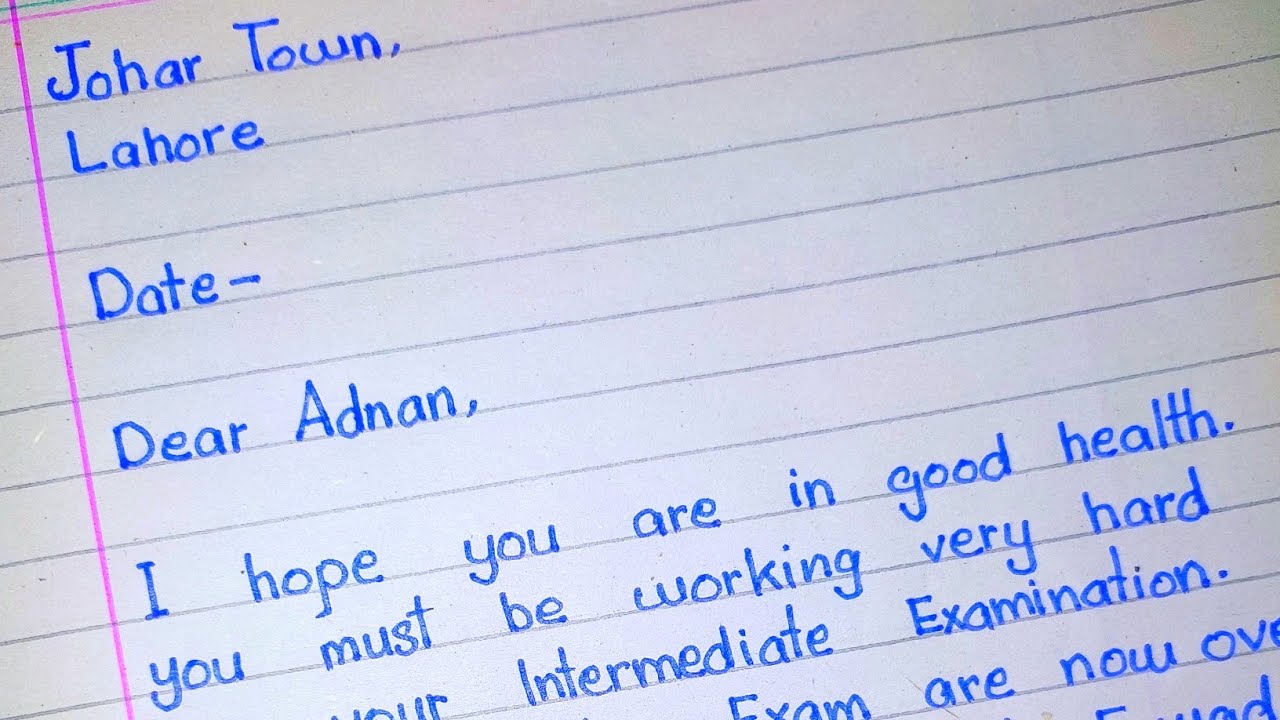 Johar Town,
Lahore
Date-
Dear Adnan,
I hope you are in good health.
you must be working very hard
your Intermediate Examination.
Exam are now ove